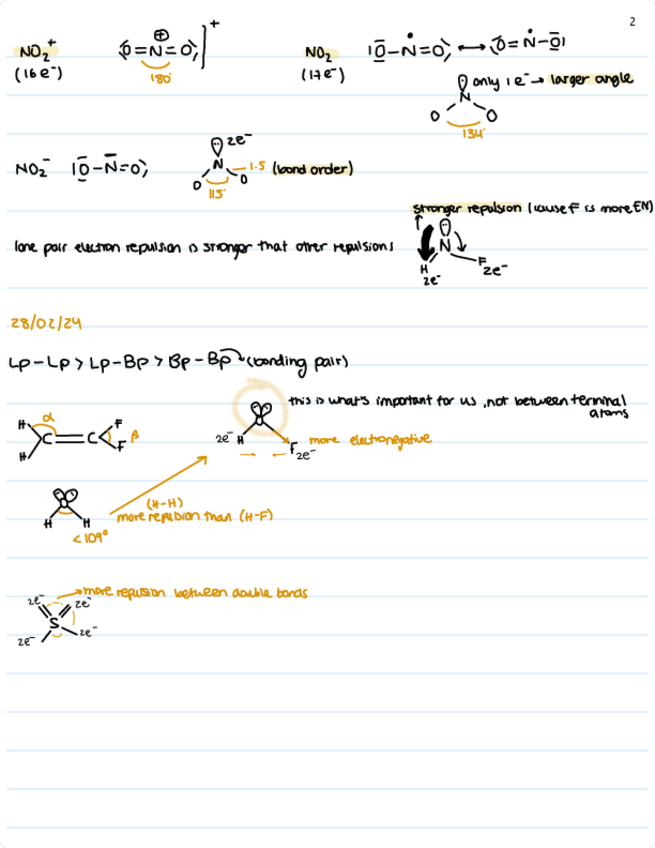 2
NO₂⁺ ⟨O=N=O⟩]⁺ NO₂ |O̅-Ṅ=O⟩ ⟷ ⟨O=Ṅ-O̅|
⊕
(16e⁻) 180° (17e⁻)
only 1e⁻ → larger angle
N
O O
134°
NO₂⁻ |O̅-N̅=O⟩
2e⁻
N 1.5 (bond order)
O O
115°
stronger repulsion (cause F is more EN)
lone pair electron repulsion is stronger that other repulsions
N
H F
2e⁻ 2e⁻
28/02/24
Lp-Lp > Lp-Bp > Bp-Bp → (bonding pair)
this is what's important for us, not between terminal
atoms
H α C=C F
H F β
2e⁻ H F 2e⁻
more electronegative
H H
<109°
(H-H)
more repulsion than (H-F)
more repulsion between double bonds
2e⁻ 2e⁻
S
2e⁻ 2e⁻